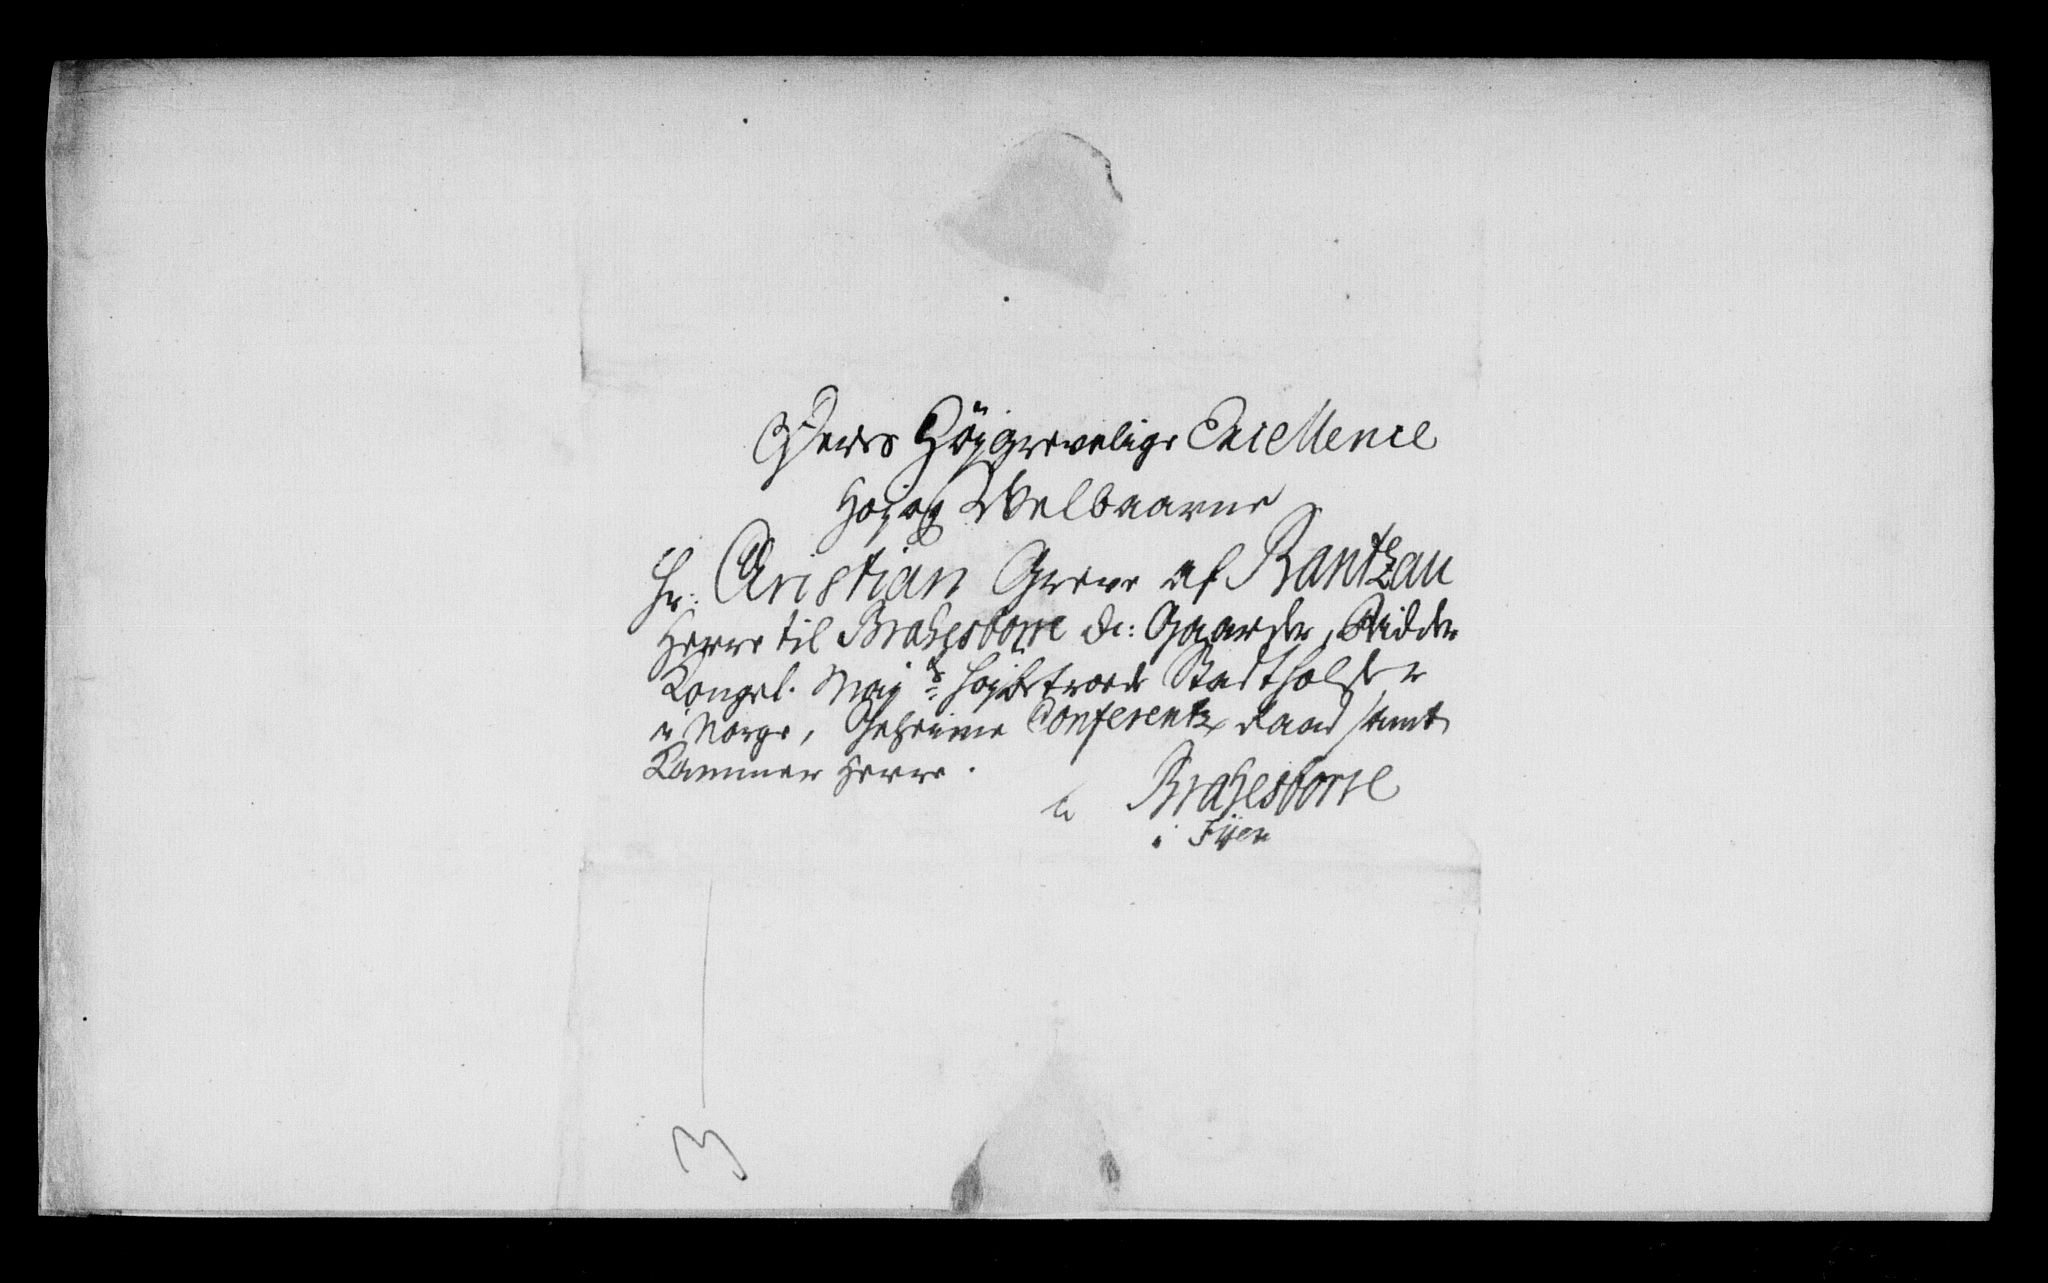 Deres Höygrevelige Excellence
Høj og Velbaarne
Hr: Christian Greve af Rantzau
Herre til Brahesborre &c: Gaarder, Ridder
Kongel. May:s høybetroede Stadtholder
i Norge, Geheime Conferentz Raad samt
Kammer Herre.
a Brahesborre
i Fÿen
3